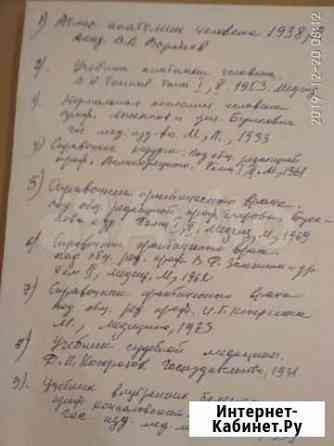 1) Атлас анатомии человека 1938,
акад. В.П. Воробьев
2) Учебник анатомии человека,
Том I, II. 1953. Медгиз
3) Нормальная анатомия человека
проф.
Гос. мед. изд-во. М., Л., 1933
4) Справочник хирурга. Под общ. редакцией
проф. Великорецкого. Том I, II, М., 1961
5) Справочник практического врача.
под общ. редакцией, проф.
Том I, II, Медгиз, М., 1969
6) Справочник практического врача
под общ. ред. проф. В.Ф. Зеленина и др.
Том II, Медгиз, М., 1962
7) Справочник практического врача
под общ. ред. проф. И.Г. Кочергина
М., Медицина, 1973
8) Учебник судебной медицины.
Ф.Л. Косоротов Госиздательство, 1931.
9) Учебник внутренних болезней
проф. Кончаловский
Гос. изд. мед.
2019-12-20 08:12
Интернет-
Купит.Ком